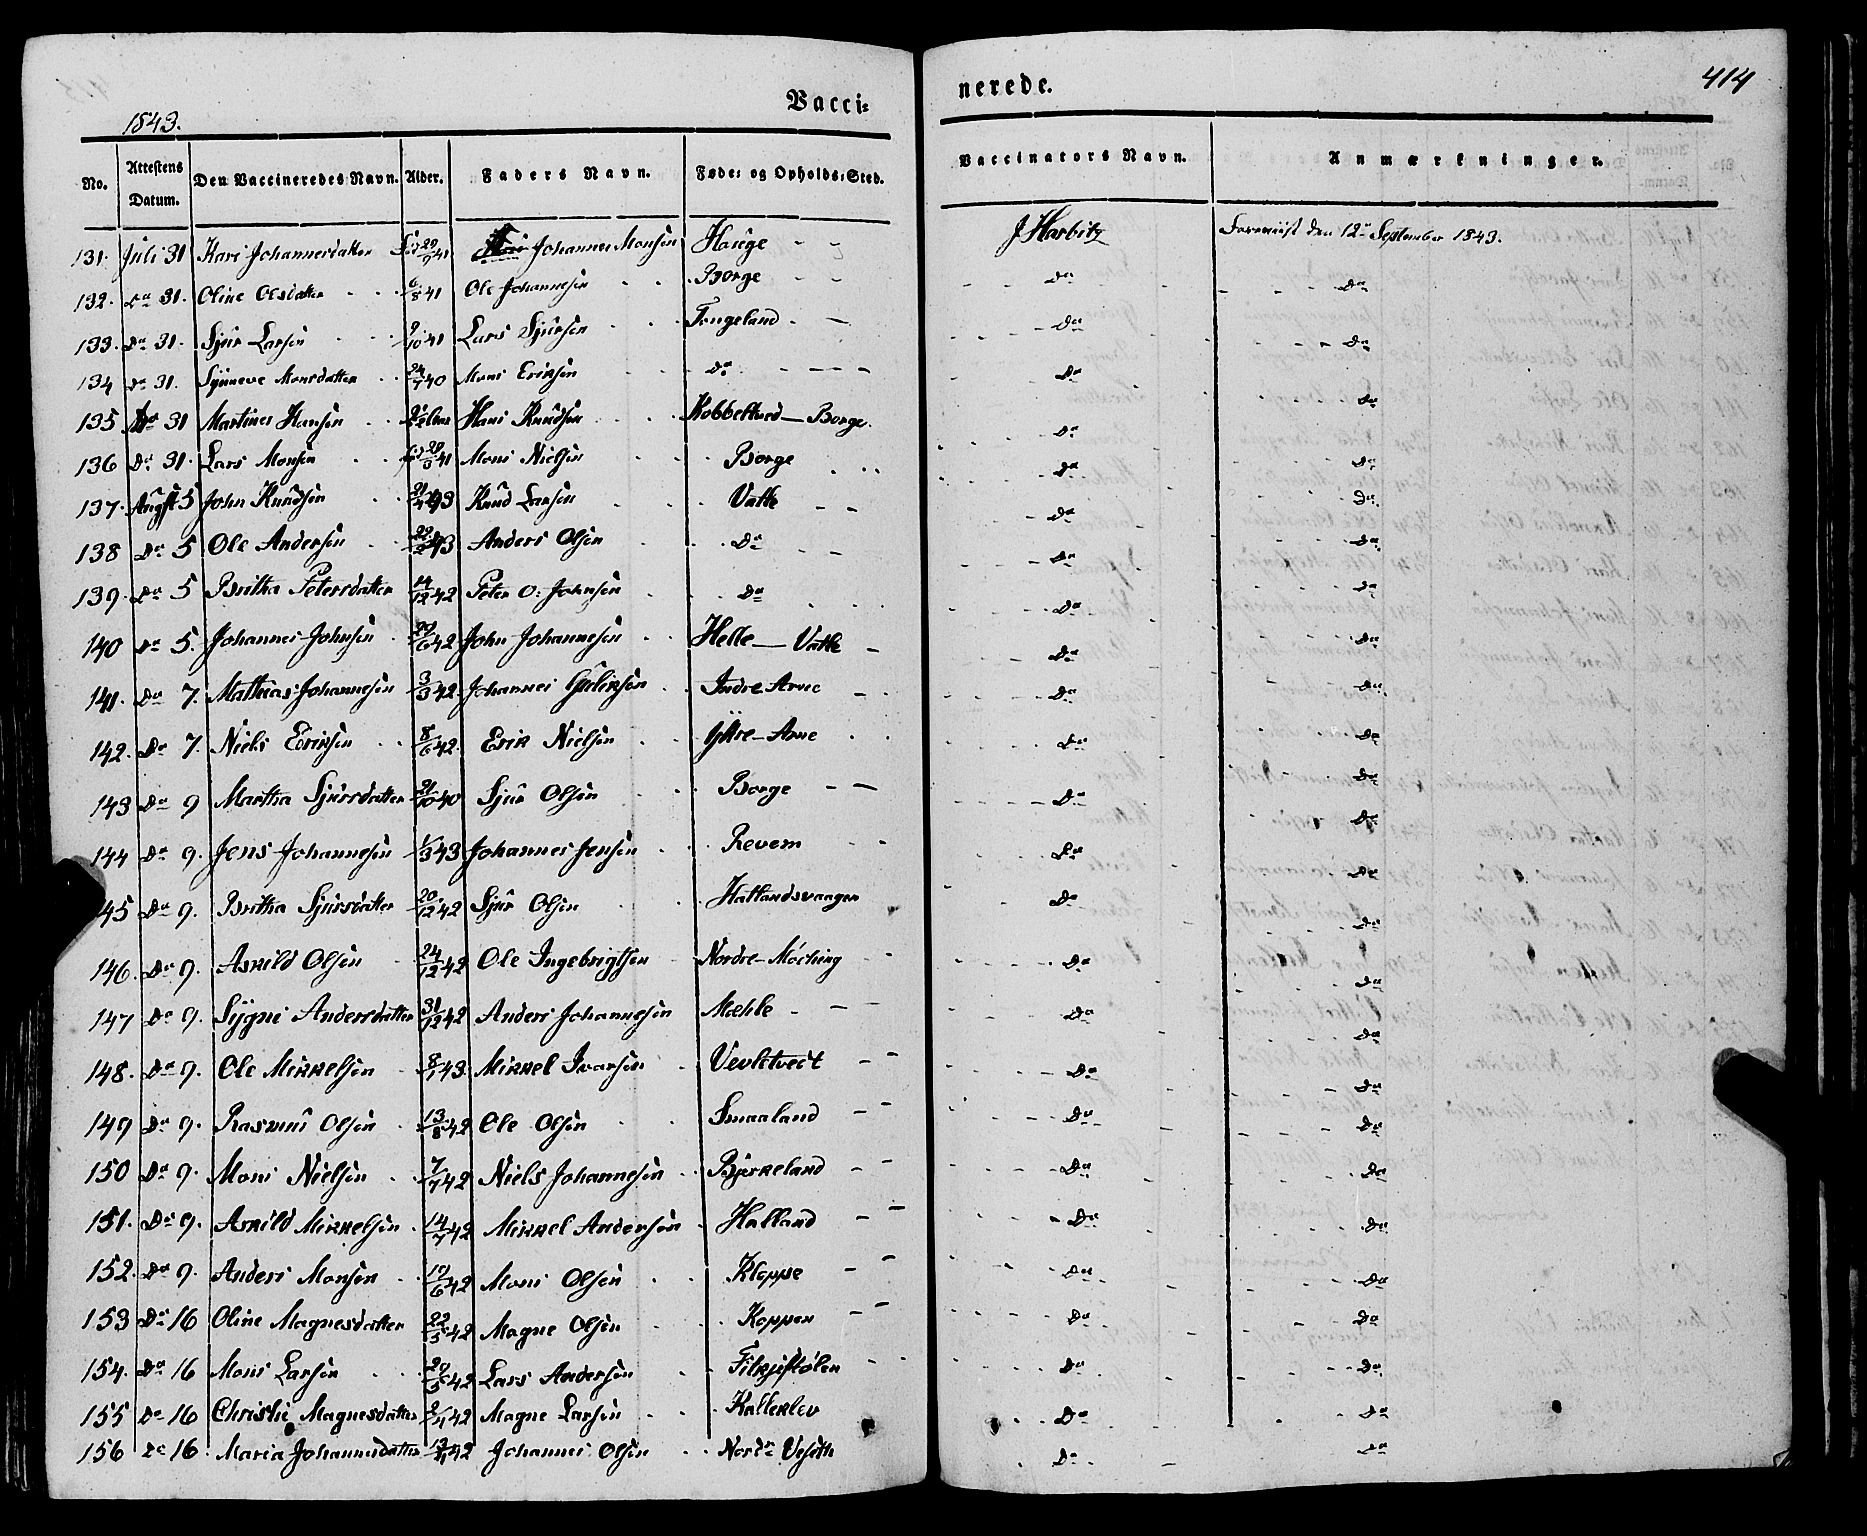 Vacci-
nerede.
414
1843.
No. Attestens Datum. Den Vaccineredes Navn. Alder. Faders Navn. Føde- og Opholds-Sted. Vaccinators Navn. Anmærkninger.
131. Juli 31 Kari Johannesdatter 41 Johannes Monsen Hauge J Harbitz Foreviist den 12te September 1843.
132. do 31. Oline Olsdatter 6/8 41 Ole Johannesen Borge do do
133. do 31. Sjur Larsen 9/10 41 Lars Sjursen Tongeland do do
134 do 31. Synneve Monsdatter 24/7 40 Mons Eriksen do do do
135 do 31 Martines Hansen Hans Knudsen Kobbeltved - Borge do do
136 do 31. Lars Monsen 41 Mons Nielsen Borge do do
137. Augst 5 John Knudsen 43 Knud Larsen Vatle do do
138 do 5 Ole Andersen 43 Anders Olsen do do do
139. do 5 Britha Petersdatter 14/12 42 Peter O. Johnsen do do do
140 do 5. Johannes Johnsen 29/6 42 John Johannesen Helle - Vatle do do
141. do 7. Mathias Johannesen 3/3 42 Johannes Guliksen Indre Arne do do
142. do 7. Niels Eriksen 8/6 42. Erik Nielsen Yttre - Arne do do
143 do 9 Martha Sjursdatter 21/10 40 Sjur Olsen Borge do do
144 do 9. Jens Johannesen 1/3 43 Johannes Jensen Revem do do
145 do 9. Britha Sjursdatter 20/12 42 Sjur Olsen Hatlandsvaagen do do
146. do 9. Askild Olsen 24/12 42 Ole Ingebrigtsen Nordre - Mosking do do
147 do 9. Sygni Andersdatter 31/12 42 Anders Johannesen Mæhle do do
148. do 9. Ole Mikkelsen 8/1 43. Mikkel Ivarsen Vevletvedt do do
149 do 9. Rasmus Olsen 13/8 42 Ole Olsen Smaaland do do
150 do 9. Mons Nielsen 7/7 42 Niels Johannesen Bjørkeland do do
151. do 9. Askild Mikkelsen 14/7 42 Mikkel Andersen Halland do do
152. do 9. Anders Monsen 10/6 42 Mons Olsen Kloppe do do
153 do 16 Oline Magnesdatter 22/5 42 Magne Olsen Koppen do do
154. do 16 Mons Larsen 29/5 42 Lars Andersen do do
155 do 16 Christi Magnesdatter 42 Magne Larsen Kalleklev do do
156 do 16. Maria Johannesdatter 42 Johannes Olsen Nordr Veseth do do